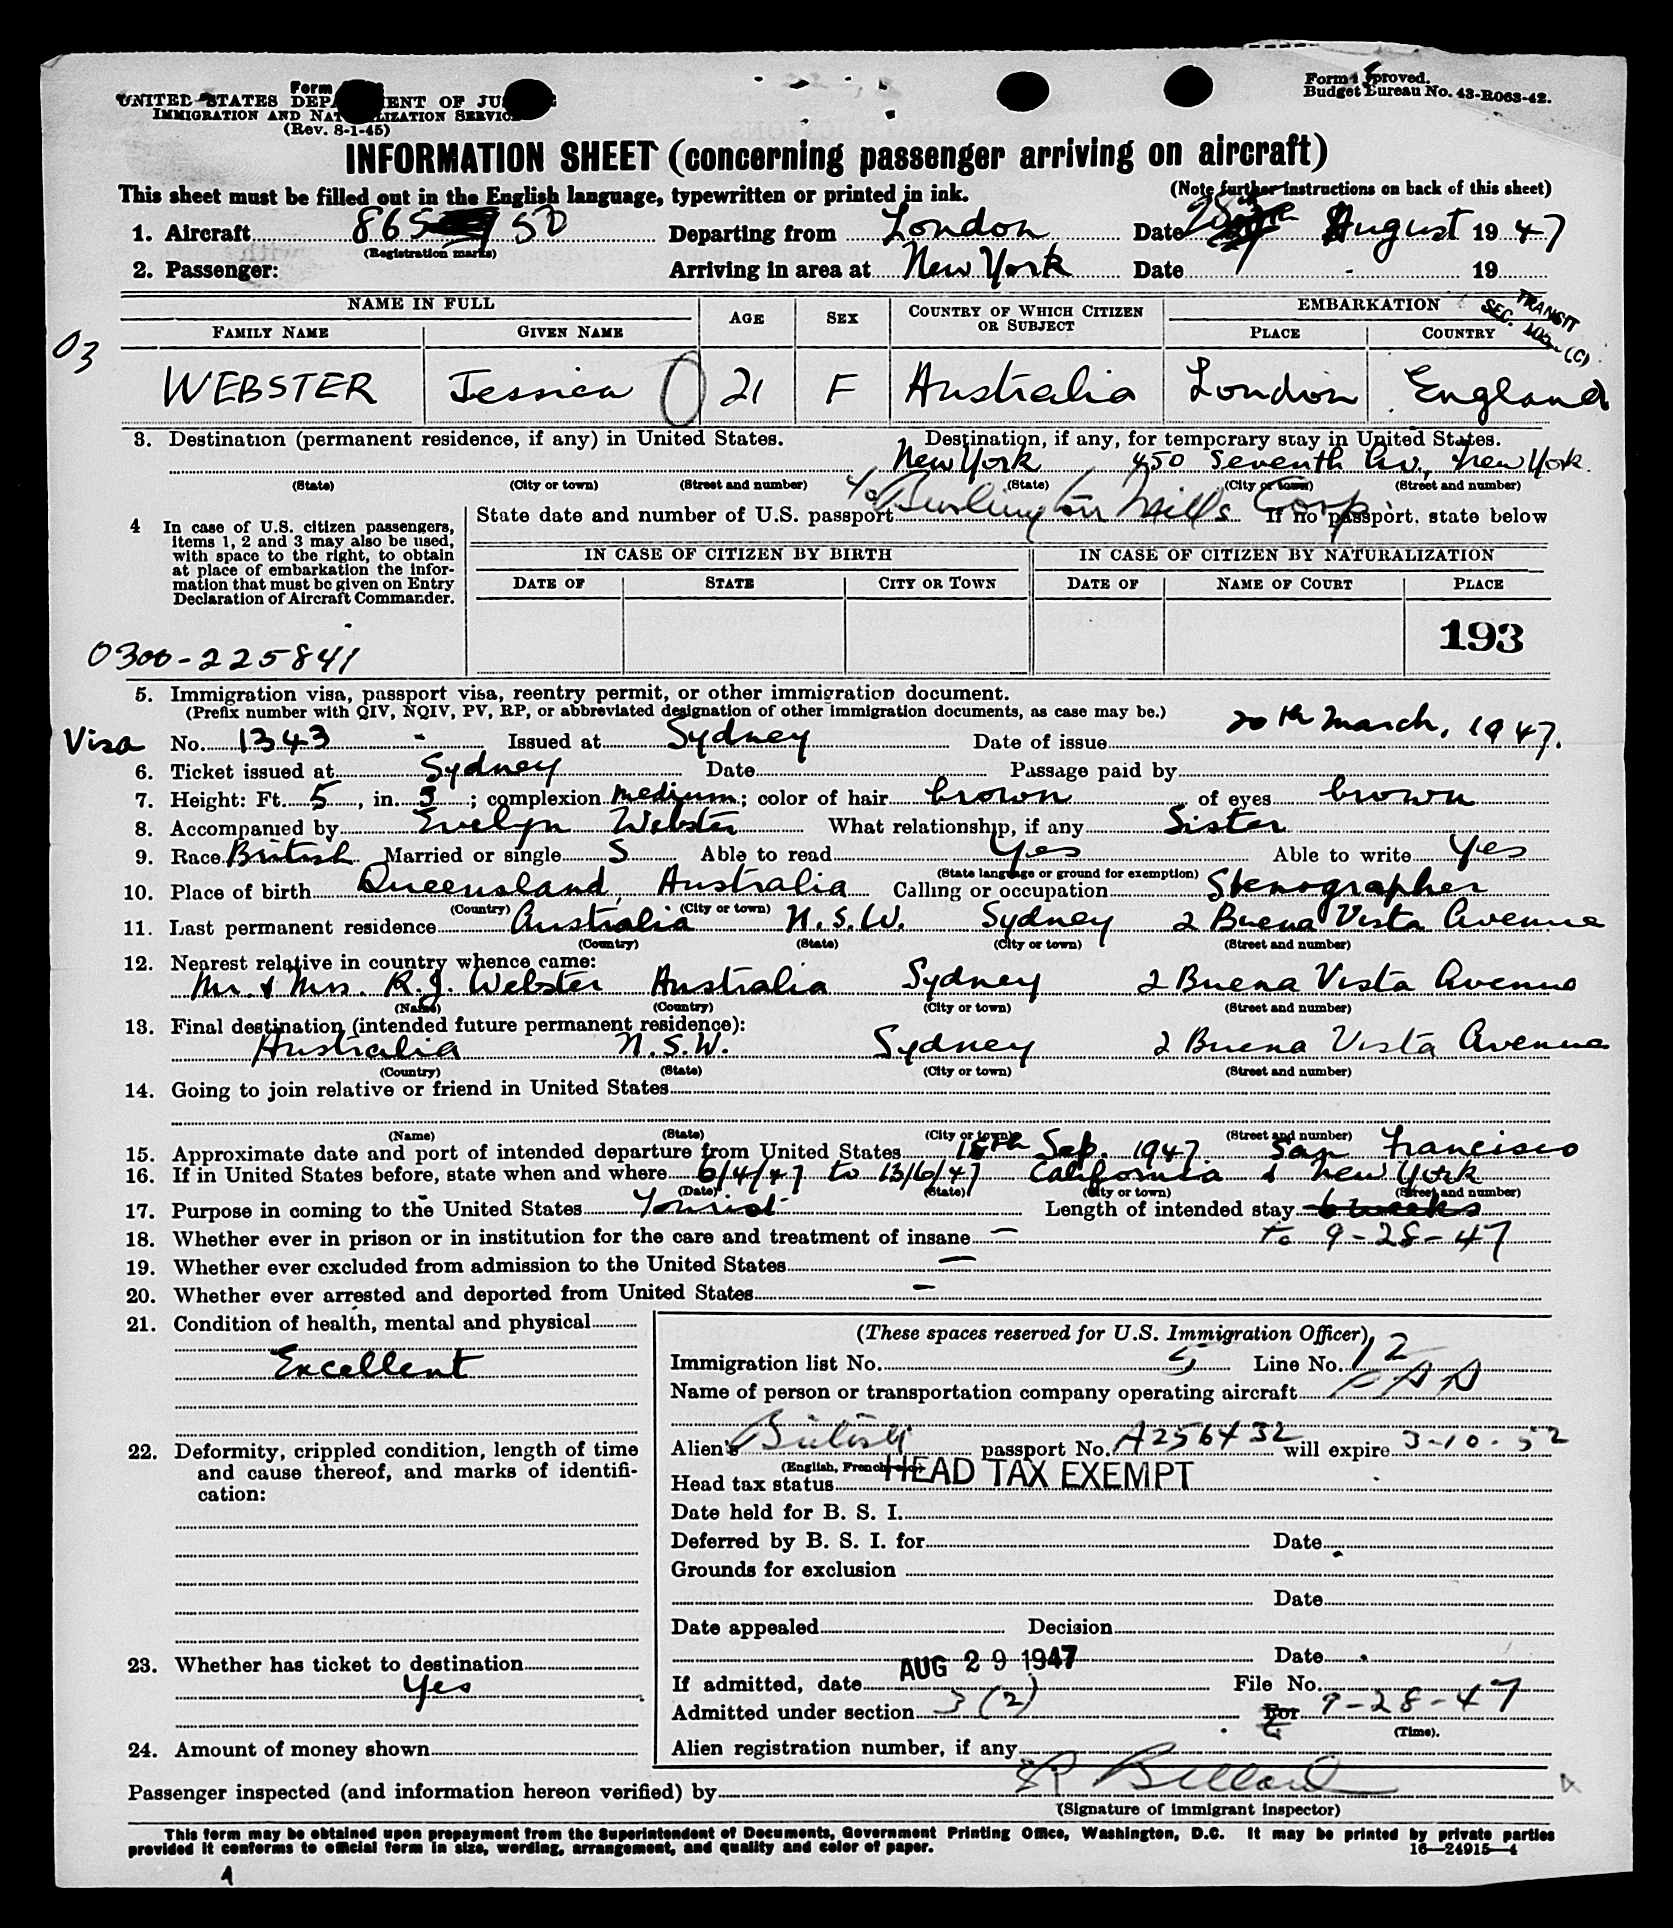 Form
UNITED STATES DEPARTMENT OF JUSTICE
IMMIGRATION AND NATURALIZATION SERVICE
(Rev. 8-1-45)
Form approved.
Budget Bureau No. 43-R063-42.
INFORMATION SHEET (concerning passenger arriving on aircraft)
This sheet must be filled out in the English language, typewritten or printed in ink. (Note further instructions on back of this sheet)
1. Aircraft 865 50 Departing from London Date 28th August 1947
(Registration marks)
2. Passenger: Arriving in area at New York Date 19
NAME IN FULL AGE SEX COUNTRY OF WHICH CITIZEN OR SUBJECT EMBARKATION
TRANSIT
SEC. (C)
FAMILY NAME GIVEN NAME PLACE COUNTRY
03
WEBSTER Jessica 21 F Australia London England
3. Destination (permanent residence, if any) in United States. Destination, if any, for temporary stay in United States.
New York 450 Seventh Av., New York.
(State) (City or town) (Street and number) (State) (City or town) (Street and number)
c/o Burlington Mills Corp.
4 In case of U.S. citizen passengers, items 1, 2 and 3 may also be used, with space to the right, to obtain at place of embarkation the information that must be given on Entry Declaration of Aircraft Commander.
State date and number of U.S. passport If no passport, state below
IN CASE OF CITIZEN BY BIRTH IN CASE OF CITIZEN BY NATURALIZATION
DATE OF STATE CITY OR TOWN DATE OF NAME OF COURT PLACE
193
0300-225841
5. Immigration visa, passport visa, reentry permit, or other immigration document.
(Prefix number with QIV, NQIV, PV, RP, or abbreviated designation of other immigration documents, as case may be.)
Visa No. 1343 Issued at Sydney Date of issue 20th March, 1947.
6. Ticket issued at Sydney Date Passage paid by
7. Height: Ft. 5, in. 3; complexion medium; color of hair brown of eyes brown
8. Accompanied by Evelyn Webster What relationship, if any Sister
9. Race British Married or single S Able to read Yes Able to write Yes
(State language or ground for exemption)
10. Place of birth Queensland, Australia Calling or occupation Stenographer
(Country) (City or town)
11. Last permanent residence Australia N.S.W. Sydney 2 Buena Vista Avenue
(Country) (State) (City or town) (Street and number)
12. Nearest relative in country whence came:
Mr. & Mrs. R.J. Webster Australia Sydney 2 Buena Vista Avenue
(Name) (Country) (City or town) (Street and number)
13. Final destination (intended future permanent residence):
Australia N.S.W. Sydney 2 Buena Vista Avenue
(Country) (State) (City or town) (Street and number)
14. Going to join relative or friend in United States
(Name) (State) (City or town) (Street and number)
15. Approximate date and port of intended departure from United States 15th Sep. 1947. San Francisco
16. If in United States before, state when and where 6/4/47 to 13/6/47 California & New York
(Date) (State) (City or town) (Street and number)
17. Purpose in coming to the United States Tourist Length of intended stay 6 weeks
18. Whether ever in prison or in institution for the care and treatment of insane — to 9-28-47
19. Whether ever excluded from admission to the United States —
20. Whether ever arrested and deported from United States —
21. Condition of health, mental and physical
Excellent
22. Deformity, crippled condition, length of time and cause thereof, and marks of identification:
23. Whether has ticket to destination
Yes
24. Amount of money shown
(These spaces reserved for U.S. Immigration Officer)
Immigration list No. 5 Line No. 12
Name of person or transportation company operating aircraft PAA
Alien's British passport No. A256432 will expire 3-10-52
(English, French, etc.)
Head tax status HEAD TAX EXEMPT
Date held for B. S. I.
Deferred by B. S. I. for Date
Grounds for exclusion
Date
Date appealed Decision
Date
If admitted, date AUG 29 1947 File No.
Admitted under section 3(2) For 9-28-47
(Time).
Alien registration number, if any
Passenger inspected (and information hereon verified) by
(Signature of immigrant inspector)
This form may be obtained upon prepayment from the Superintendent of Documents, Government Printing Office, Washington, D.C. It may be printed by private parties
provided it conforms to official form in size, wording, arrangement, and quality and color of paper.
16—24915-4